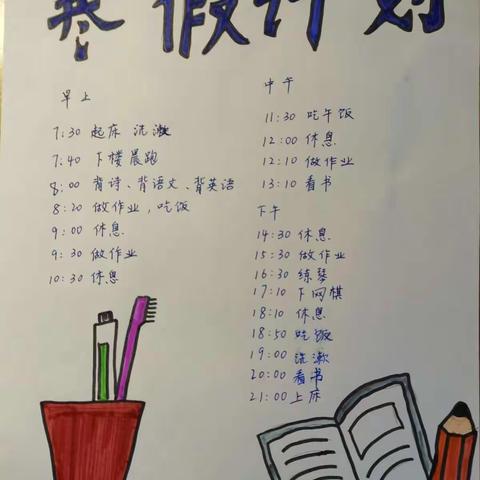 寒假计划
早上
7:30 起床 洗漱
7:40 下楼晨跑
8:00 背诗、背语文、背英语
8:20 做作业,吃饭
9:00 休息
9:30 做作业
10:30 休息
中午
11:30 吃午饭
12:00 休息
12:10 做作业
13:10 看书
下午
14:30 休息
15:30 做作业
16:30 练琴
17:10 下网棋
18:10 休息
18:50 吃饭
19:00 洗漱
20:00 看书
21:00 上床